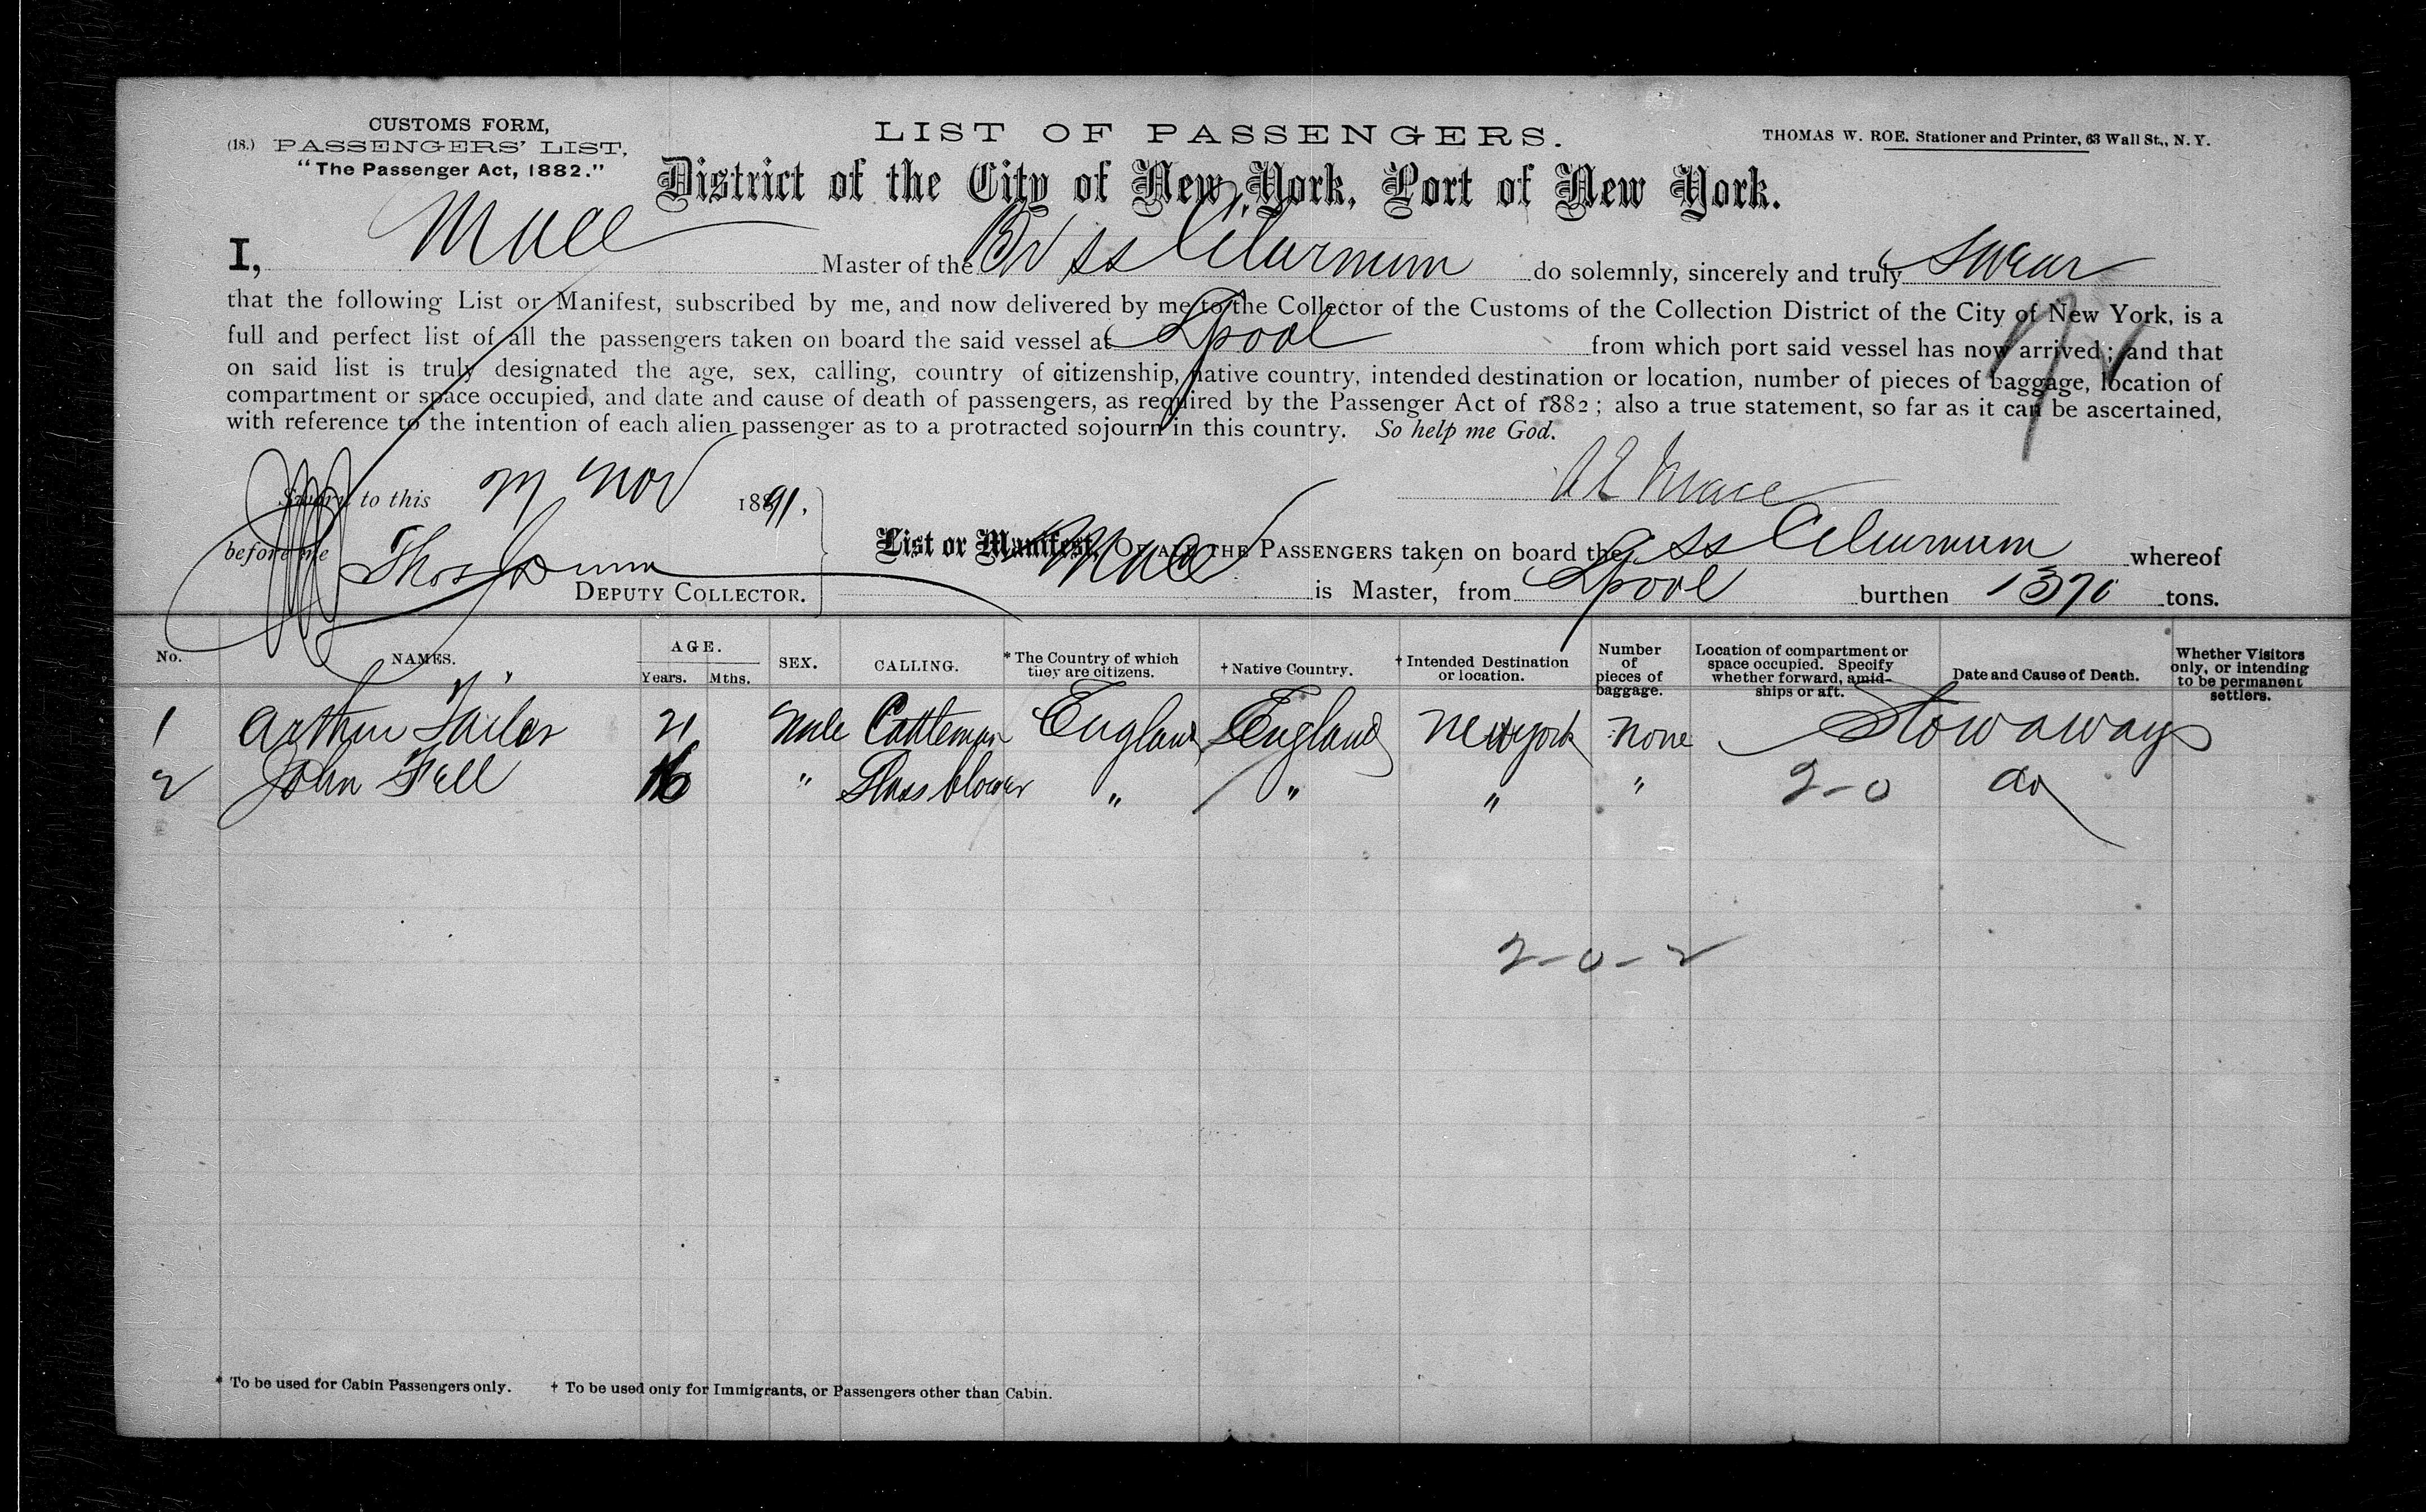 CUSTOMS FORM,
(18.) PASSENGERS' LIST,
"The Passenger Act, 1882."
LIST OF PASSENGERS.
THOMAS W. ROE, Stationer and Printer, 63 Wall St., N. Y.
District of the City of New York, Port of New York.
I, Mace Master of the Br SS do solemnly, sincerely and truly Swear
that the following List or Manifest, subscribed by me, and now delivered by me to the Collector of the Customs of the Collection District of the City of New York, is a
full and perfect list of all the passengers taken on board the said vessel at Lpool from which port said vessel has now arrived; and that
on said list is truly designated the age, sex, calling, country of citizenship, native country, intended destination or location, number of pieces of baggage, location of
compartment or space occupied, and date and cause of death of passengers, as required by the Passenger Act of 1882; also a true statement, so far as it can be ascertained,
with reference to the intention of each alien passenger as to a protracted sojourn in this country. So help me God.
Sworn to this Nov 1891,
Mace
before me Thos Dunn
DEPUTY COLLECTOR.
List or Manifest, OF ALL THE PASSENGERS taken on board the SS whereof
Mace is Master, from Lpool burthen 1370 tons.
No. NAMES. AGE. Years. Mths. SEX. CALLING. * The Country of which they are citizens. † Native Country. † Intended Destination or location. Number of pieces of baggage. Location of compartment or space occupied. Specify whether forward, amidships or aft. Date and Cause of Death. Whether Visitors only, or intending to be permanent settlers.
1 Arthur Tailor 21 Male Cattleman England England New york None Stowaways
2 John Fell 16 " Glass blower " " " " 2-0 do
2-0-2
* To be used for Cabin Passengers only. † To be used only for Immigrants, or Passengers other than Cabin.